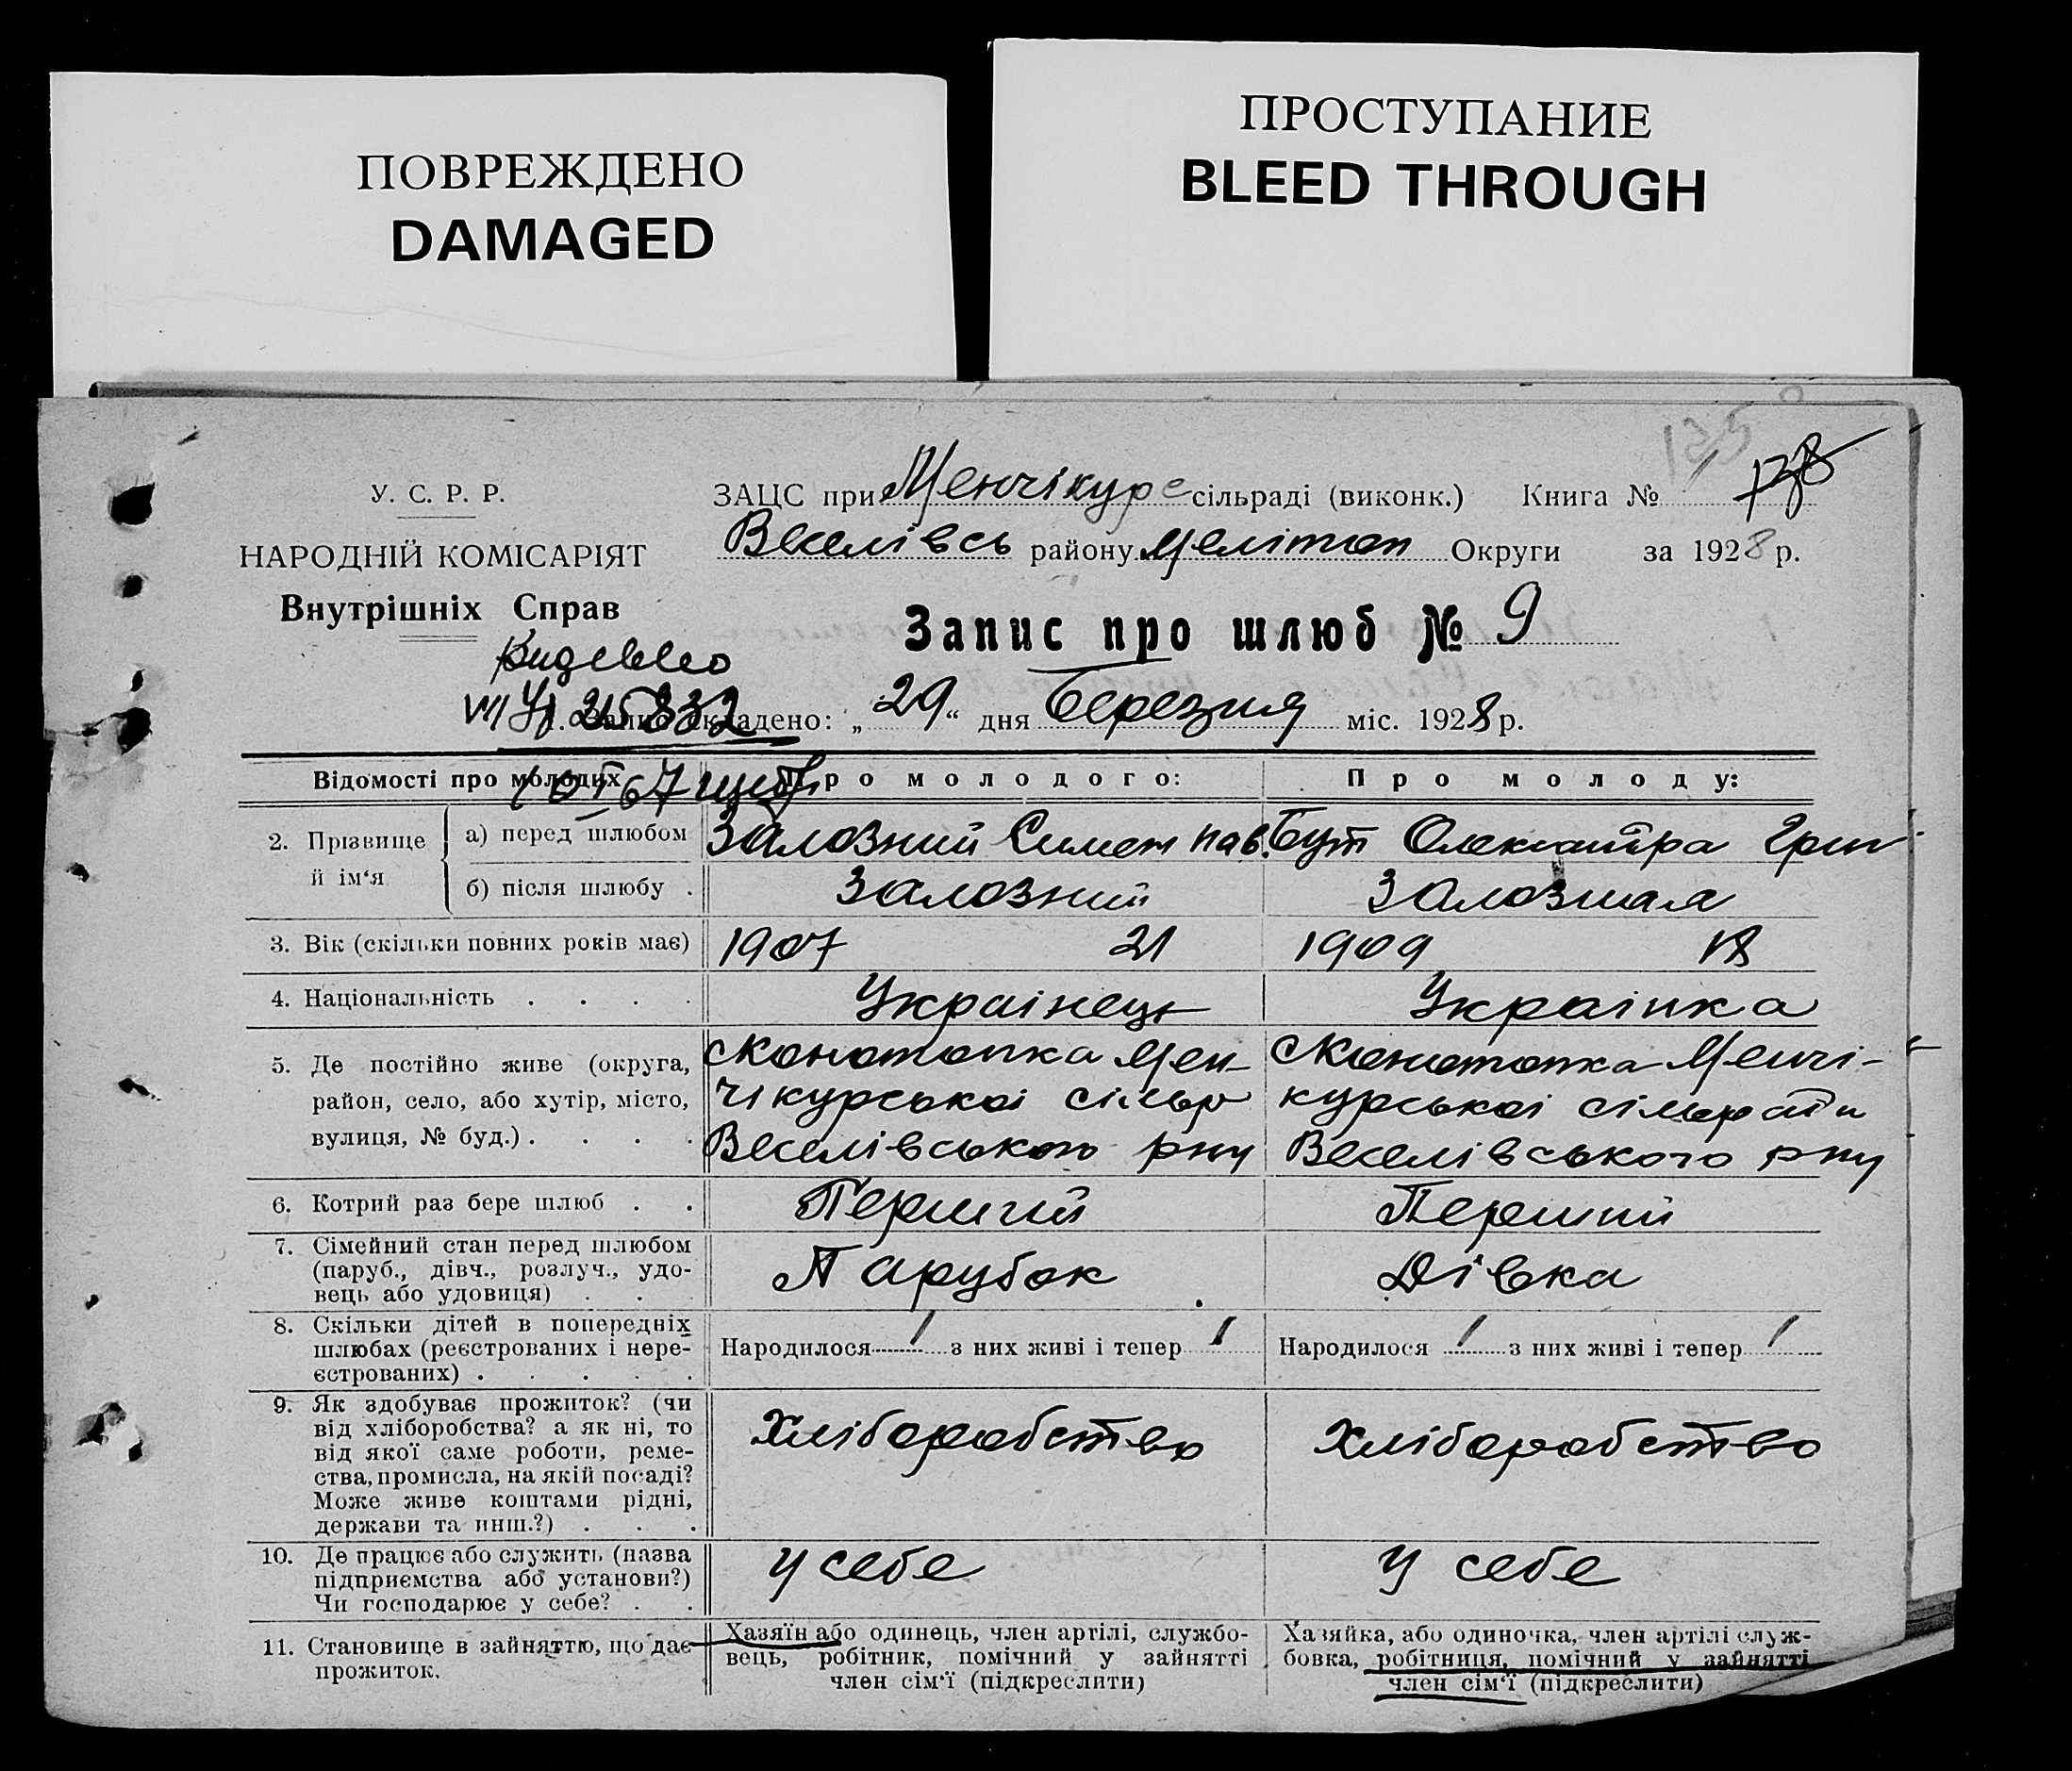 ПОВРЕЖДЕНО
DAMAGED
ПРОСТУПАНИЕ
BLEED THROUGH
У. С. Р. Р.
НАРОДНІЙ КОМІСАРІЯТ
Внутрішніх Справ
ЗАЦС при Менчікуре сільраді (виконк.) Книга №
Веселівсь району Мелітоп Округи за 1928 р.
Запис про шлюб № 9
Видевео
1. Запис складено: „29“ дня Березня міс. 1928 р.
Відомості про молодих Про молодого: Про молоду:
2. Прізвище й ім‘я
а) перед шлюбом Залозний Симен Пав. Бут Олександра Григ
б) після шлюбу . Залозний Залозная
3. Вік (скільки повних років має) 1907 21 1909 18
4. Національність . . . . Українець Українка
5. Де постійно живе (округа, сКонотопка Мен- сКонотопка Менчі-
район, село, або хутір, місто, чікурськоі сільр курськоі сільради
вулиця, № буд.) . . . . Веселівського рну Веселівського рну
6. Котрий раз бере шлюб . . Перший Перший
7. Сімейний стан перед шлюбом
(паруб., дівч., розлуч., удо- Парубок Дівка
вець або удовиця) . . .
8. Скільки дітей в попередніх
шлюбах (реєстрованих і нере- Народилося / з них живі і тепер / Народилося / з них живі і тепер /
єстрованих) . . . . .
9. Як здобуває прожиток? (чи
від хліборобства? а як ні, то Хліборобство Хліборобство
від якої саме роботи, реме-
ства, промисла, на якій посаді?
Може живе коштами рідні,
держави та инш.?) . . .
10. Де працює або служить (назва у себе у себе
підприємства або установи?)
Чи господарює у себе? . .
11. Становище в зайняттю, що дає Хазяїн або одинець, член артілі, службо- Хазяйка, або одиночка, член артілі служ-
прожиток. вець, робітник, помічний у зайнятті бовка, робітниця, помічний у зайнятті
член сім‘ї (підкреслити) член сім‘ї (підкреслити)